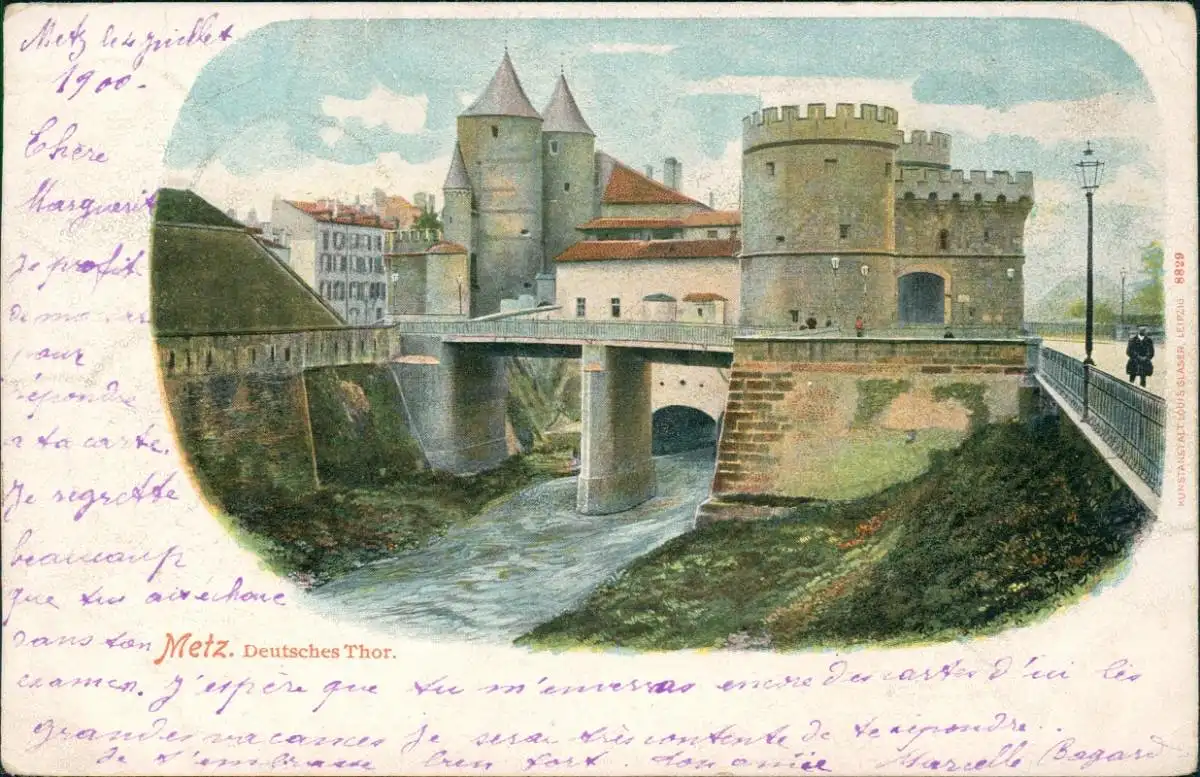 Metz le 4 juillet
1900-
Chère
Marguerit
Je profit
de ma
pour
répondre
a ta carte.
Je régrette
beaucoup
que tu ai échoué
dans ton
examen. J'espère que tu m'enverras encore des cartes d'ici les
grandes vacances Je serai très contente de te répondre..
Je t'embrasse bien fort. ton amie Marcelle Bagard
Metz. Deutsches Thor.
KUNSTANSTALT LOUIS GLASER, LEIPZIG 8829